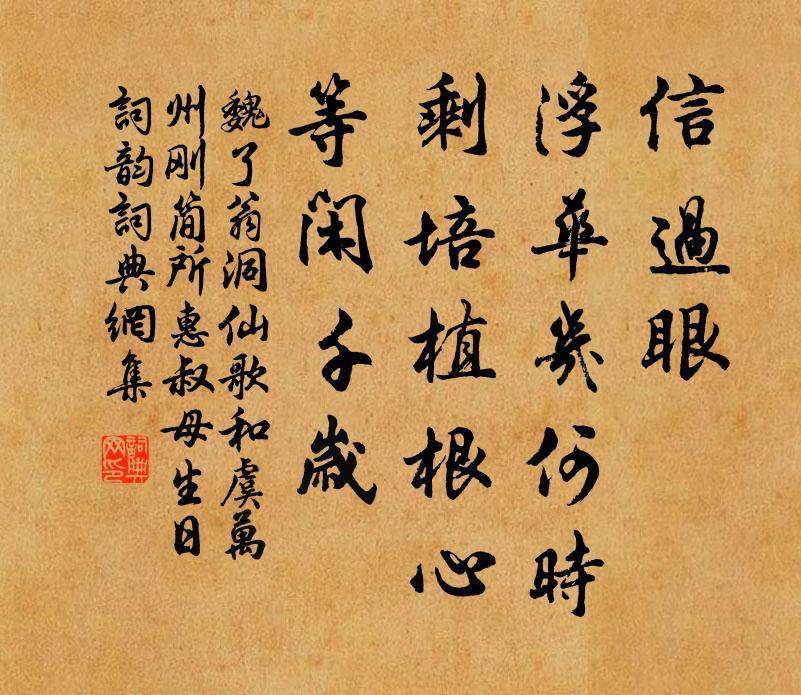 信過眼
浮華幾何時
剩培植根心
等閑千歲
魏了翁洞仙歌和虞萬
州刚简所惠叔母生日
詞韵詞典網集
詞典
网印